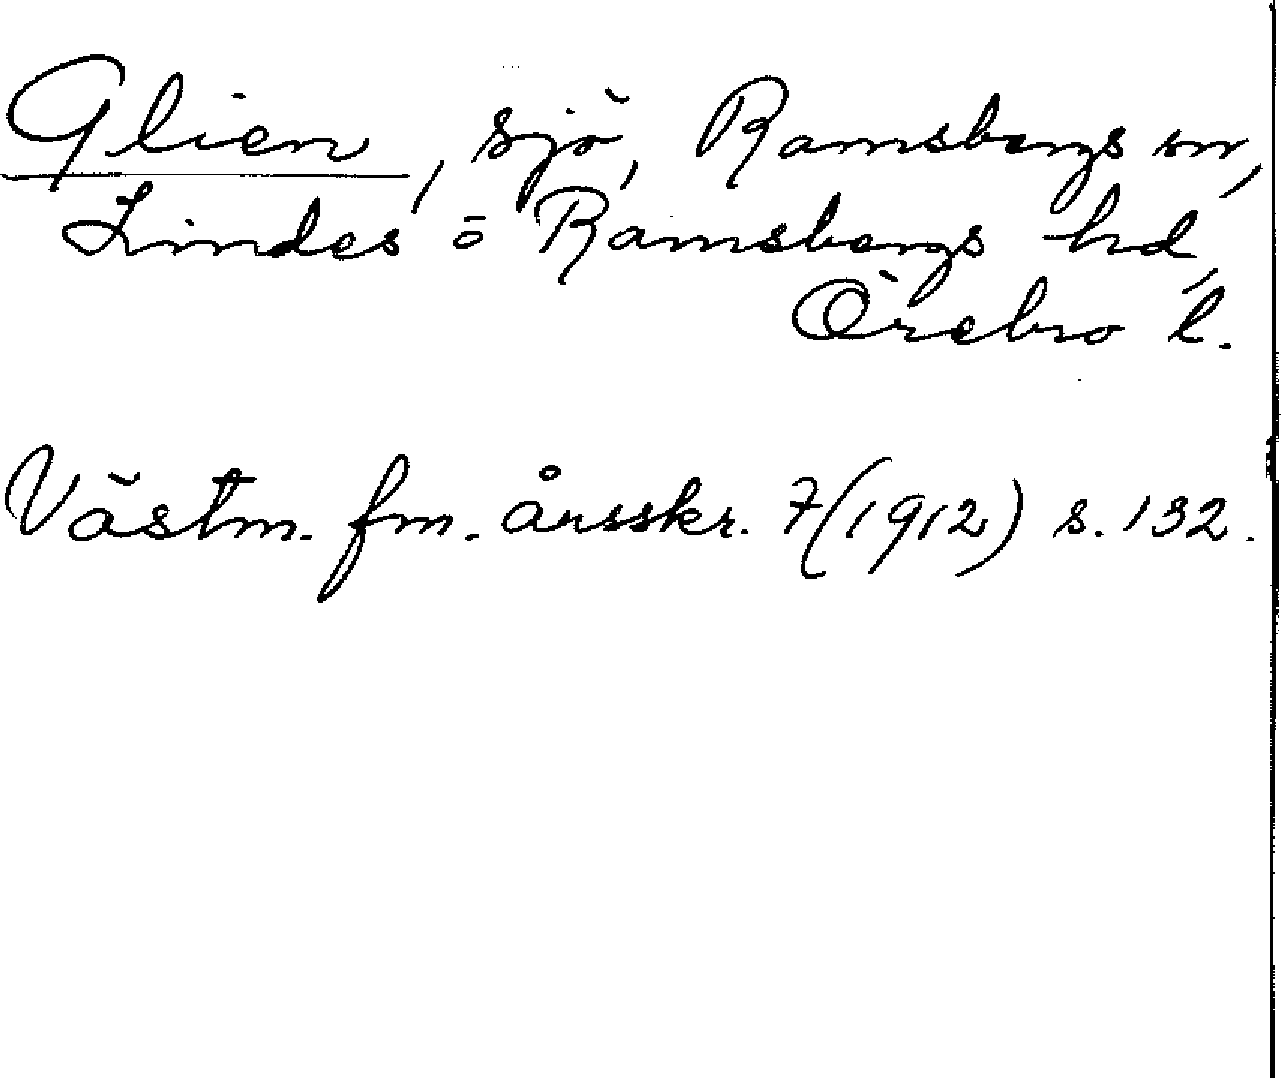 Glien, sjö, Ramsbergs sn,
Lindes o Ramsbergs hd,
Örebro l.
Västm. fm. årsskr. 7(1912) s. 132.